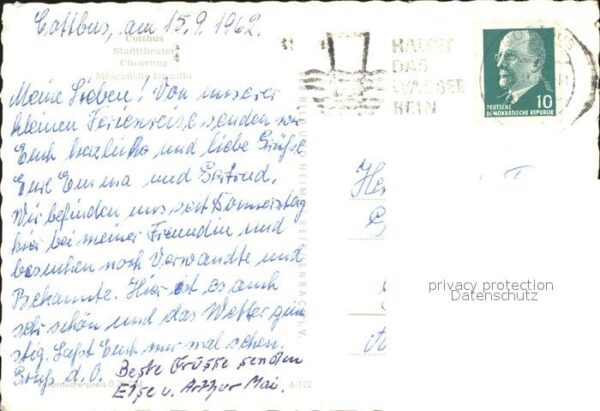 Cottbus, am 15.9.1962.
Cottbus
Stadttheater
Chośebuz
Měsćańske źiwadło
Meine Lieben! Von unserer
kleinen Ferienreise senden wir
Euch herzliche und liebe Grüße
Eure Emma und Gertrud.
Wir befinden uns seit Donnerstag
hier bei meiner Freundin und
besuchen noch Verwandte und
Bekannte. Hier ist es auch
sehr schön und das Wetter gün
stig. Laßt Euch nur mal sehen.
Gruß d. O.
Beste Grüsse senden
Else u. Arthur Mai.
HALTET
DAS
WASSER
REIN
DEUTSCHE
DEMOKRATISCHE REPUBLIK
10
privacy protection
Datenschutz
6 122